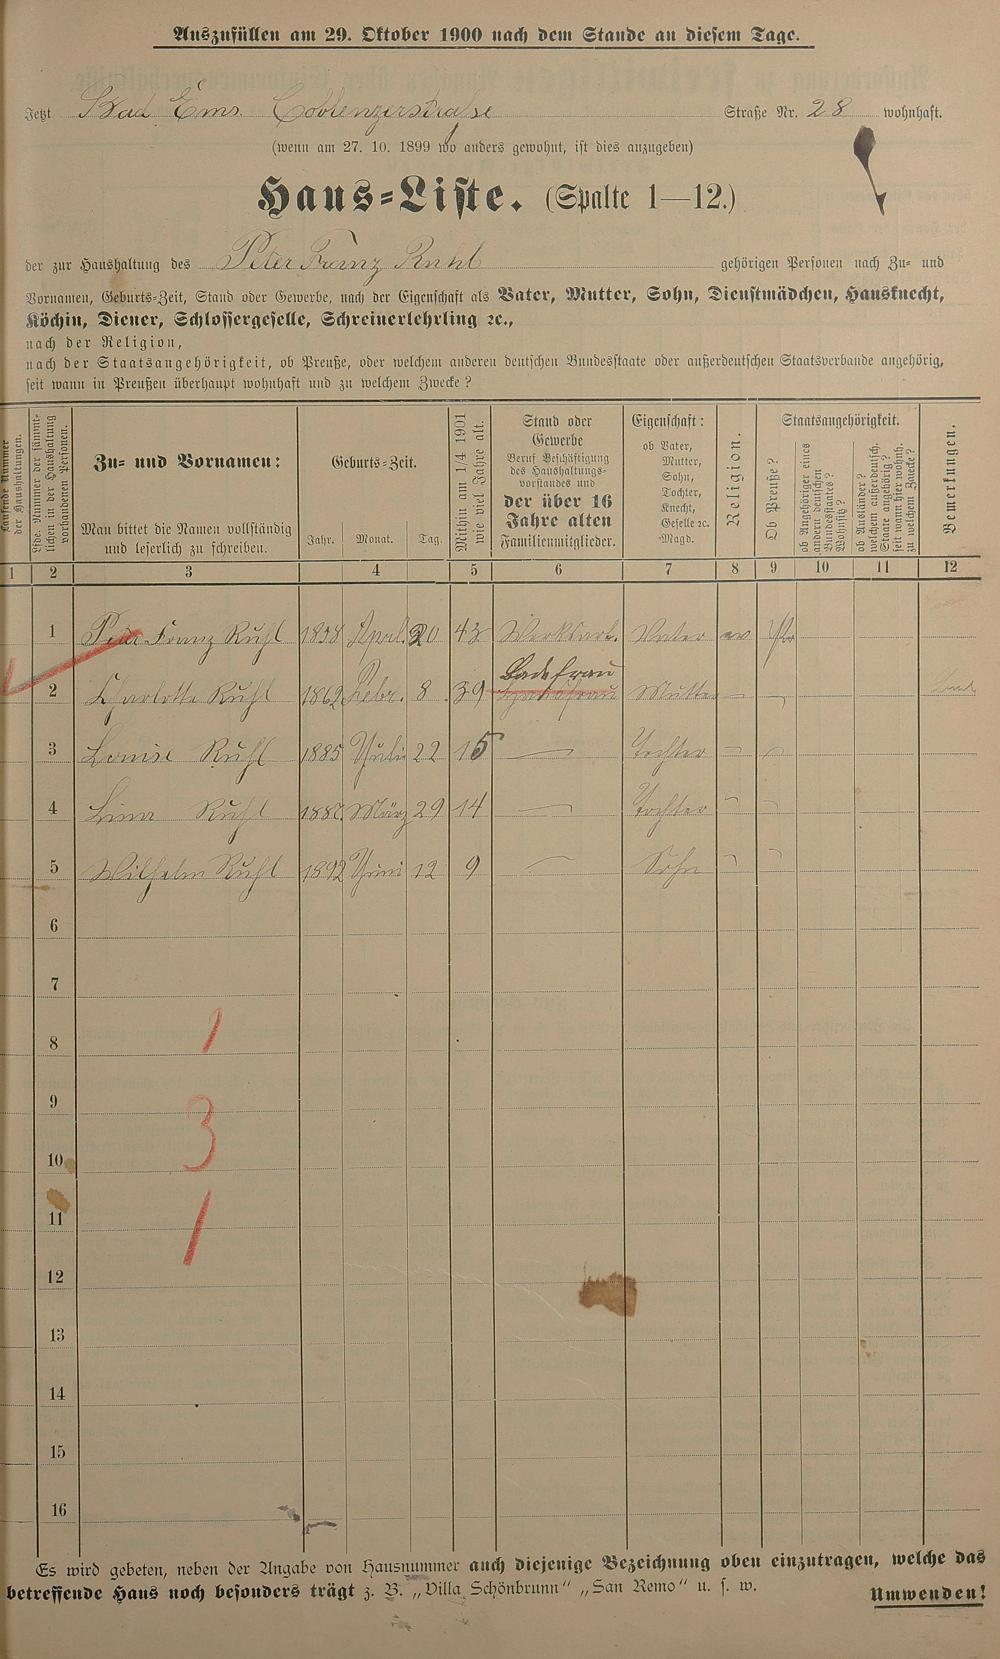 Auszufüllen am 29. Oktober 1900 nach dem Stande an diesem Tage.
Jetzt Bad Ems. Coblenzerstraße Straße Nr. 28 wohnhaft.
(wenn am 27. 10. 1899 wo anders gewohnt, ist dies anzugeben)
Haus-Liste. (Spalte 1—12.)
der zur Haushaltung des Peter Franz Ruhl gehörigen Personen nach Zu- und
Vornamen, Geburts-Zeit, Stand oder Gewerbe, nach der Eigenschaft als Vater, Mutter, Sohn, Dienstmädchen, Hausknecht,
Köchin, Diener, Schlossergeselle, Schreinerlehrling ꝛc.,
nach der Religion,
nach der Staatsangehörigkeit, ob Preuße, oder welchem anderen deutschen Bundesstaate oder außerdeutschen Staatsverbande angehörig,
seit wann in Preußen überhaupt wohnhaft und zu welchem Zwecke?
Laufende Nummer
der Haushaltungen.
Lfde. Nummer der sämmt-
lichen in der Haushaltung
vorhandenen Personen.
Zu- und Vornamen:
Man bittet die Namen vollständig
und leserlich zu schreiben.
Geburts-Zeit.
Jahr. Monat. Tag.
Mithin am 1/4 1901
wie viel Jahre alt.
Stand oder
Gewerbe
Beruf Beschäftigung
des Haushaltungs-
vorstandes und
der über 16
Jahre alten
Familienmitglieder.
Eigenschaft:
ob Vater,
Mutter,
Sohn,
Tochter,
Knecht,
Geselle ꝛc.
Magd.
Religion.
Staatsangehörigkeit.
Ob Preuße?
ob Angehöriger eines
andern deutschen
Bundesstaates?
Wohnsitz?
ob Ausländer?
welchem außerdeutsch.
Staate angehörig?
seit wann hier wohnh.
zu welchem Zwecke?
Bemerkungen.
1 2 3 4 5 6 7 8 9 10 11 12
1 Peter Franz Ruhl 1858 April. 20 43 Vater ev Pr
2 Charlotte Ruhl 1862 Febr. 8. 39 Badefrau Mutter —
3 Louise Ruhl 1885 Juli 22 15 — Tochter —
4 Lina Ruhl 1887. März 29 14 — Tochter
5 Wilhelm Ruhl 1892 Juni 12 9 — Sohn
6
7
8 1
9
10 3
11 1
12
13
14
15
16
Es wird gebeten, neben der Angabe von Hausnummer auch diejenige Bezeichnung oben einzutragen, welche das
betreffende Haus noch besonders trägt z. B. „Villa Schönbrunn“ „San Remo“ u. s. w.
Umwenden!